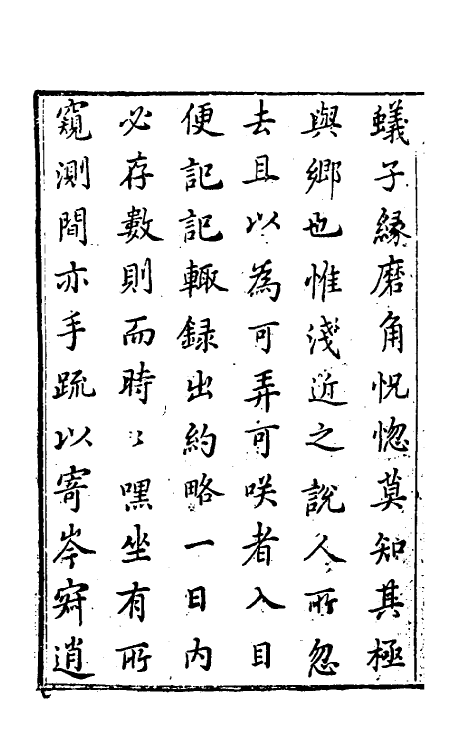 蟻子緣磨角怳惚莫知其極
與鄉也惟淺近之說人所忽
去且以為可弄可咲者入目
便記記輙録出約略一日內
必存數則而時〻嘿坐有所
窺測間亦手疏以寄岑寂逍